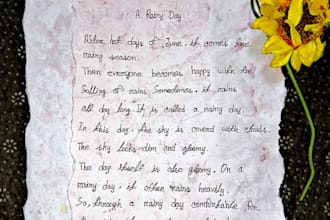 A Rainy Day
After hot days of June, it comes fore
rainy season.
Then everyone becomes happy with the
falling of rains. Sometimes, it rains
all day long. It is called a rainy day.
In this day, the sky is coverd with clouds.
The sky looks dim and gloomy.
The day itself is also gloomy. On a
rainy day, it often rains heavily.
So, through a rainy day comfortable for